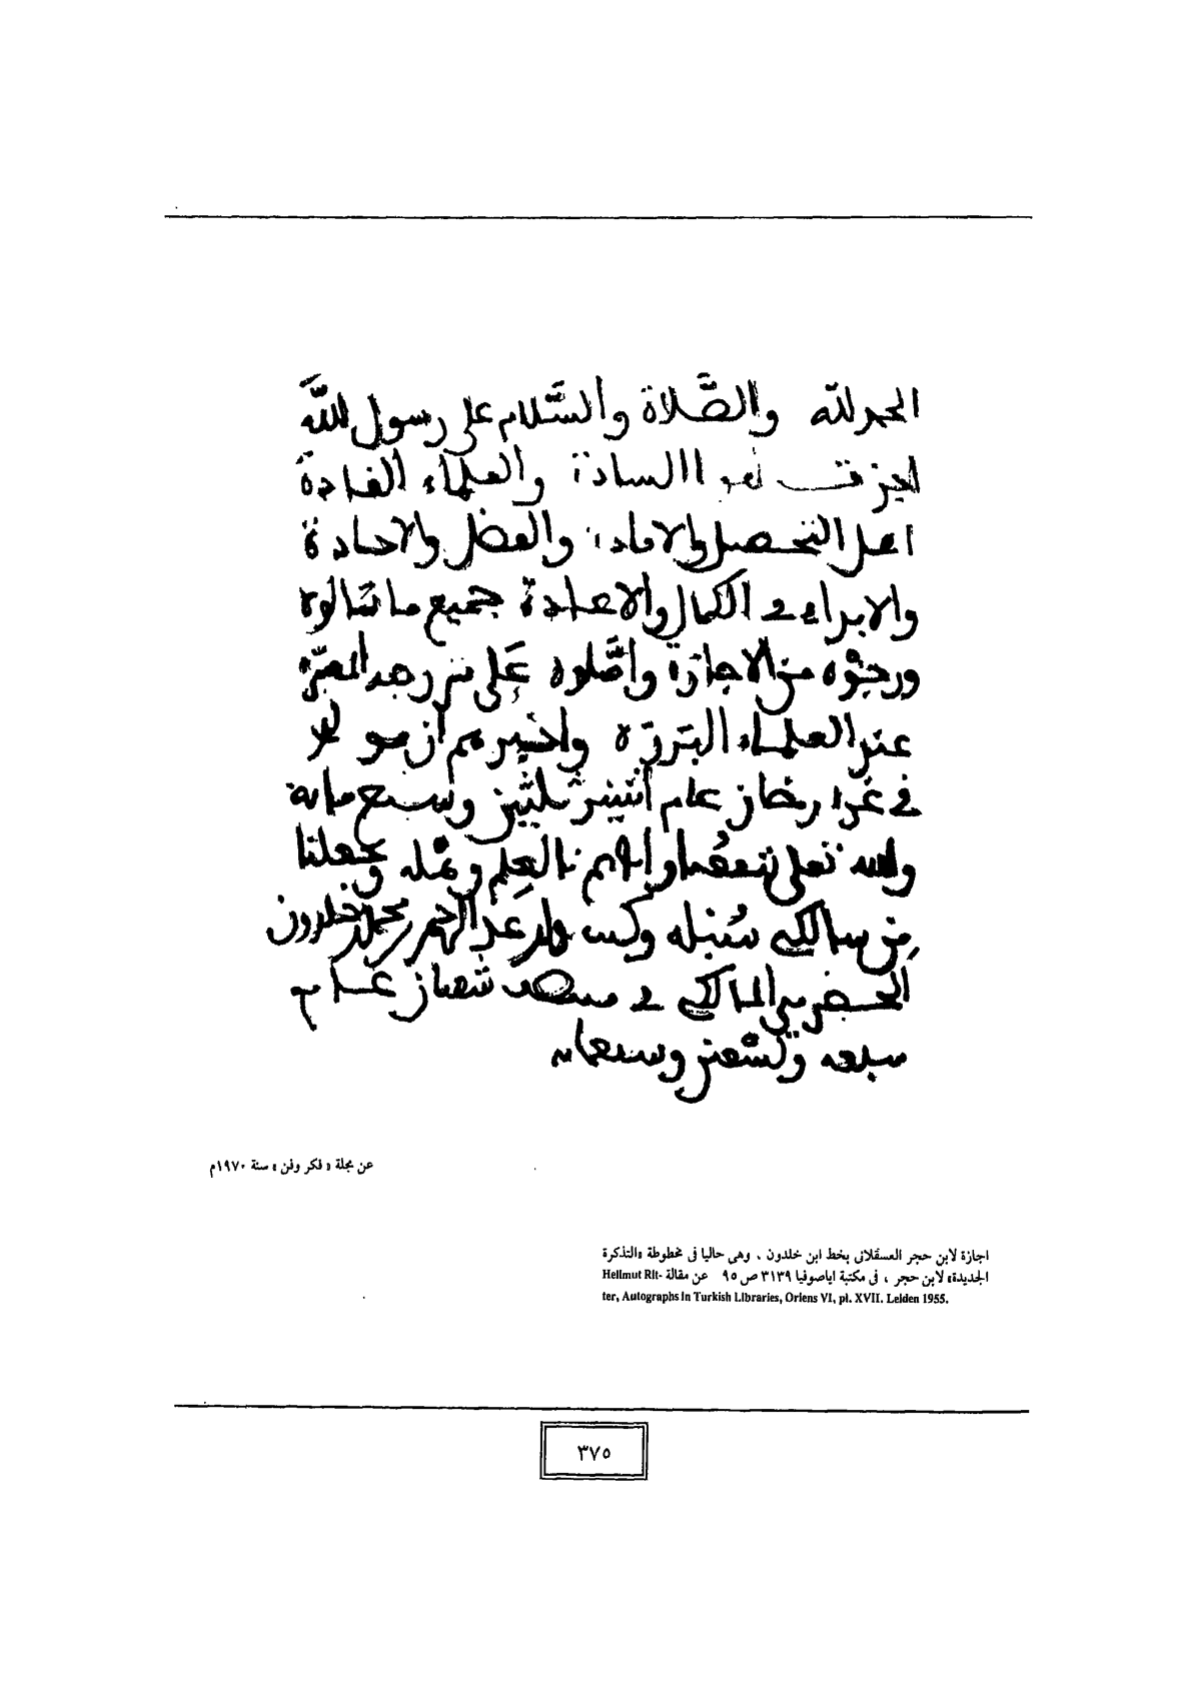 الحمد لله والصَّلاة والسَّلام على رسول اللَّه
اجزت لهولاء السادة والعلماء القادة
اهل التحصيل والافادة والفضل والاجادة
والابداء في الكمال والاعادة جميع ما سَالوه
ورجَوْه من الاجازة وامَّلوه عَلى
عند العلماء البَررَة واخبرهم أن مولدي
في غرة رمضان عام اثنين ثلثين وسبع ماية
والله تعلى ينفعُنا واياهم بالعِلم وأهله ويجعلنا
مِن سالكي سُبُله وكتب عَبد الرحمن بن محمد بن خلدون
الحضرمي المالكي في منتصف شعبان عام
سبعه وتسعين وسبعمايه
عن مجلة « فكر وفن » سنة ١٩٧٠م
اجازة لابن حجر العسقلانى بخط ابن خلدون ، وهى حاليا فى مخطوطة «التذكرة
الجديدة» لابن حجر ، فى مكتبة اياصوفيا ٣١٣٩ ص ٩٥ عن مقالة Hellmut Rit-
ter, Autographs in Turkish Libraries, Oriens VI, pl. XVII. Leiden 1955.
٣٧٥